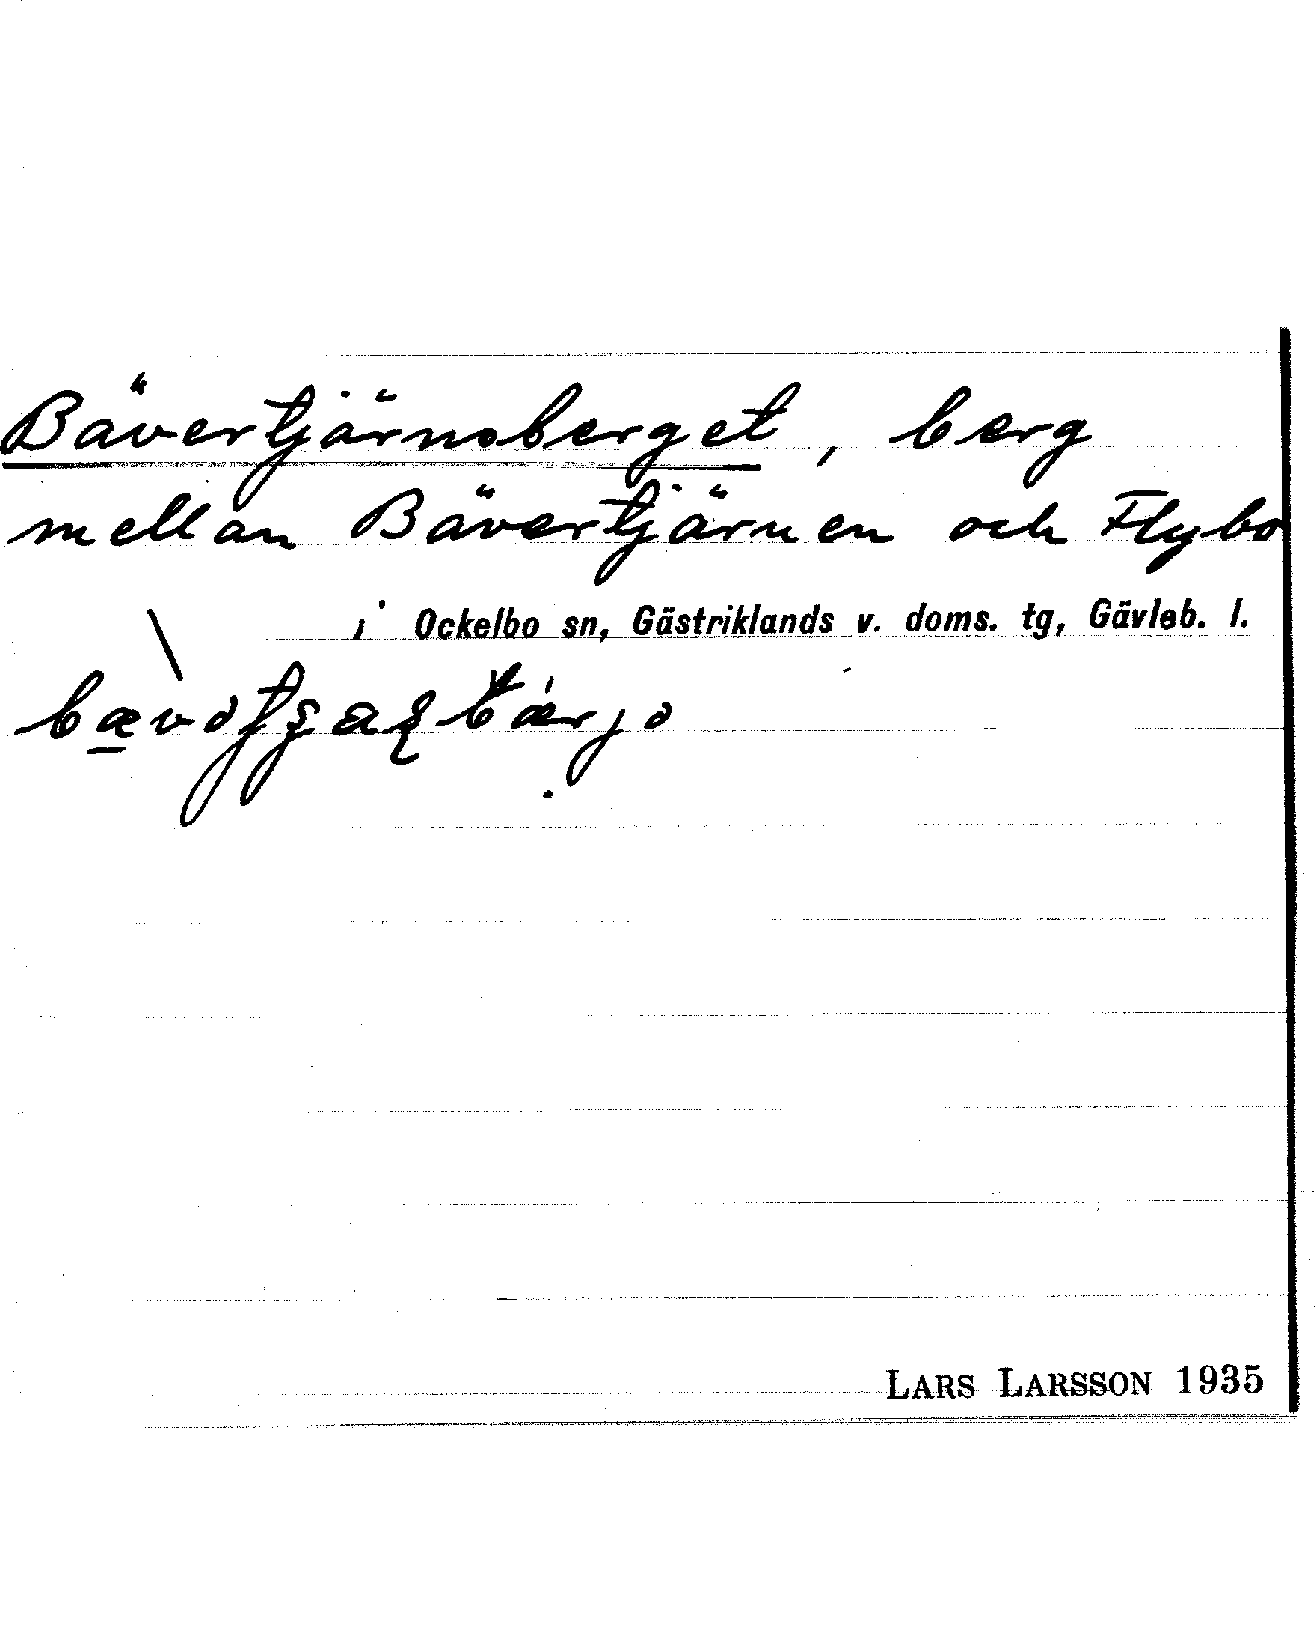 Bävertjärnsberget, berg
mellan Bävertjärnen och Flybo
i Ockelbo sn, Gästriklands v. doms. tg, Gävleb. l.
LARS LARSSON 1935